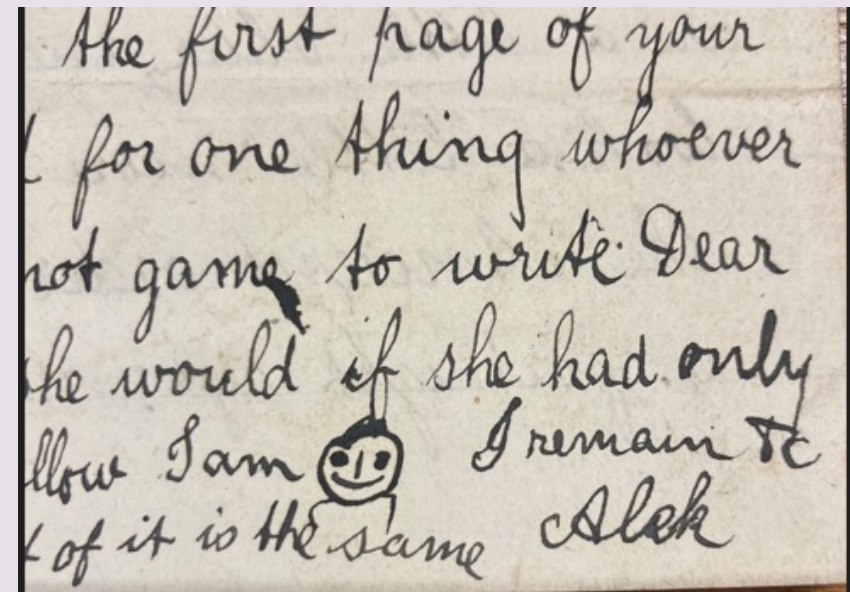 the first page of your
for one thing whoever
not game to write Dear
she would if she had only
llow I am I remain &c
of it is the same Alek